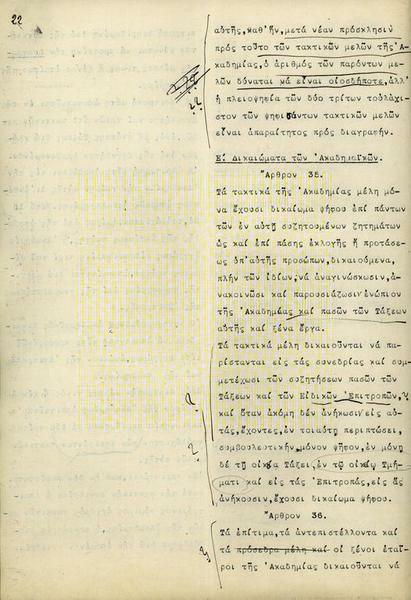 22
αὐτῆς, καθ' ἥν, μετά νέαν πρόσκλησιν
πρός τοῦτο τῶν τακτικῶν μελῶν τῆς Ἀ-
καδημίας, ὁ ἀριθμός τῶν παρόντων με-
λῶν δύναται νά εἶναι οἱοσδήποτε, ἀλλ'
ἡ πλειοψηφία τῶν δύο τρίτων τοὐλάχι-
στον τῶν ψηφισάντων τακτικῶν μελῶν
εἶναι ἀπαραίτητος πρός διαγραφήν.
Ε. Δικαιώματα τῶν Ἀκαδημαϊκῶν.
Ἄρθρον 35.
Τά τακτικά τῆς Ἀκαδημίας μέλη μό-
να ἔχουσι δικαίωμα ψήφου ἐπί πάντων
τῶν ἐν αὐτῇ συζητουμένων ζητημάτων
ὡς καί ἐπί πάσης ἐκλογῆς ἤ προτάσε-
ως ὑπ' αὐτῆς προσώπων, δικαιούμενα,
πλήν τῶν ἰδίων, νά ἀναγινώσκωσιν, ἀ-
νακοινῶσι καί παρουσιάζωσιν ἐνώπιον
τῆς Ἀκαδημίας καί πασῶν τῶν Τάξεων
αὐτῆς καί ξένα ἔργα.
Τά τακτικά μέλη δικαιοῦνται νά πα-
ρίστανται εἰς τάς συνεδρίας καί συμ-
μετέχωσι τῶν συζητήσεων πασῶν τῶν
Τάξεων καί τῶν Εἰδικῶν Ἐπιτροπῶν,
καί ὅταν ἀκόμη δέν ἀνήκωσιν εἰς αὐ-
τάς, ἔχοντες, ἐν τοιαύτῃ περιπτώσει,
συμβουλευτικήν μόνον ψῆφον, ἐν μόνῃ
δέ τῇ οἰκείᾳ Τάξει, ἐν τῷ οἰκείῳ Τμή-
ματι καί εἰς τάς Ἐπιτροπάς, εἰς ἅς
ἀνήκουσιν, ἔχουσι δικαίωμα ψήφου.
Ἄρθρον 36.
Τά ἐπίτιμα, τά ἀντεπιστέλλοντα καί
τά πρόσεδρα μέλη καί οἱ ξένοι ἑταῖ-
ροι τῆς Ἀκαδημίας δικαιοῦνται νά